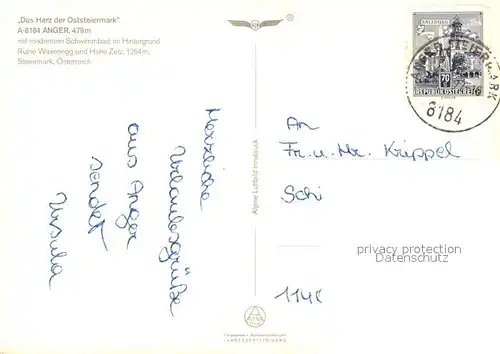 „Das Herz der Oststeiermark"
A-8184 ANGER, 479 m
mit modernem Schwimmbad, im Hintergrund
Ruine Waxenegg und Hohe Zetz, 1264 m,
Steiermark, Österreich
SALZBURG
REPUBLIK ÖSTERREICH
ANGER, STEIERMARK
8184
Herzliche
Urlaubsgrüße
aus Anger
sendet
Ursula
Alpine Luftbild Innsbruck
An
Fr. u. Hr. Krippel
Schi
1140
privacy protection
Datenschutz